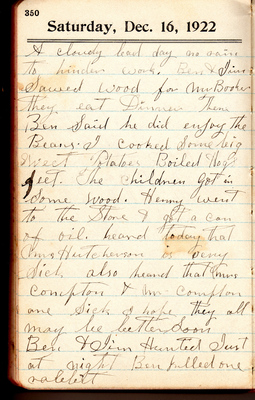 350
Saturday, Dec. 16, 1922
A cloudy bad day no rain
to hinder work. Ben & Jim
Sawed wood for Mr Booker
they eat Dinner there
Ben Said he did enjoy the
Beans. I cooked Some big
Sweet Potatoes Boiled Hog
feet. The children got in
Some wood. Henry went
to the Store & got a can
of oil. heard today that
Mrs Hutcherson is very
Sick also heard that Mrs
Compton & Mr Compton
are Sick I hope they all
may be better soon
Ben & Jim Hunted Just
at night Ben pulled one
rabbit